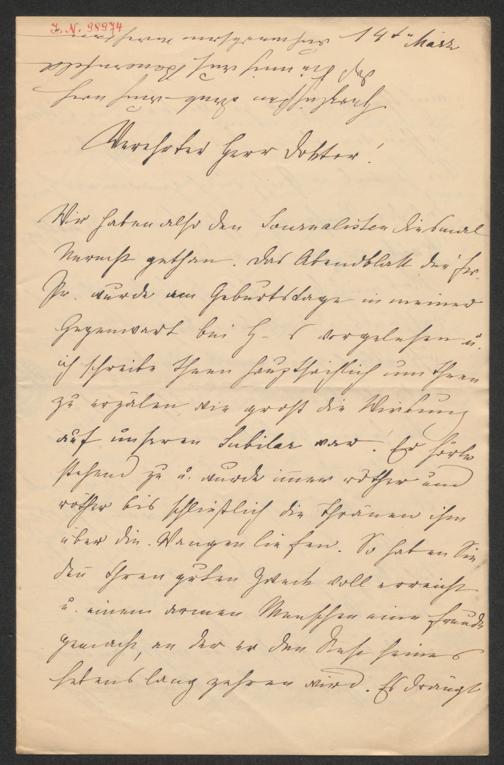 I. N. 98974
14t. März
Verehrter Herr Doktor!
Wir haben also den Journalisten diesmal
Unrecht gethan. Das Abendblatt der fr.
Pr. wurde am Geburtstage in meiner
Gegenwart bei H– s vorgelesen u.
ich schreibe Ihnen hauptsächlich um Ihnen
zu erzälen wie groß die Wirkung
auf unseren Jubilar war! Er hörte
stehend zu u. wurde immer röther und
röther bis schließlich die Thränen ihm
über die Wangen liefen. So haben Sie
den Ihren guten Zweck voll erreicht
u. einem armen Menschen eine Freude
gemacht, an der er den Rest seines
Lebens lang zehren wird. Es drängt